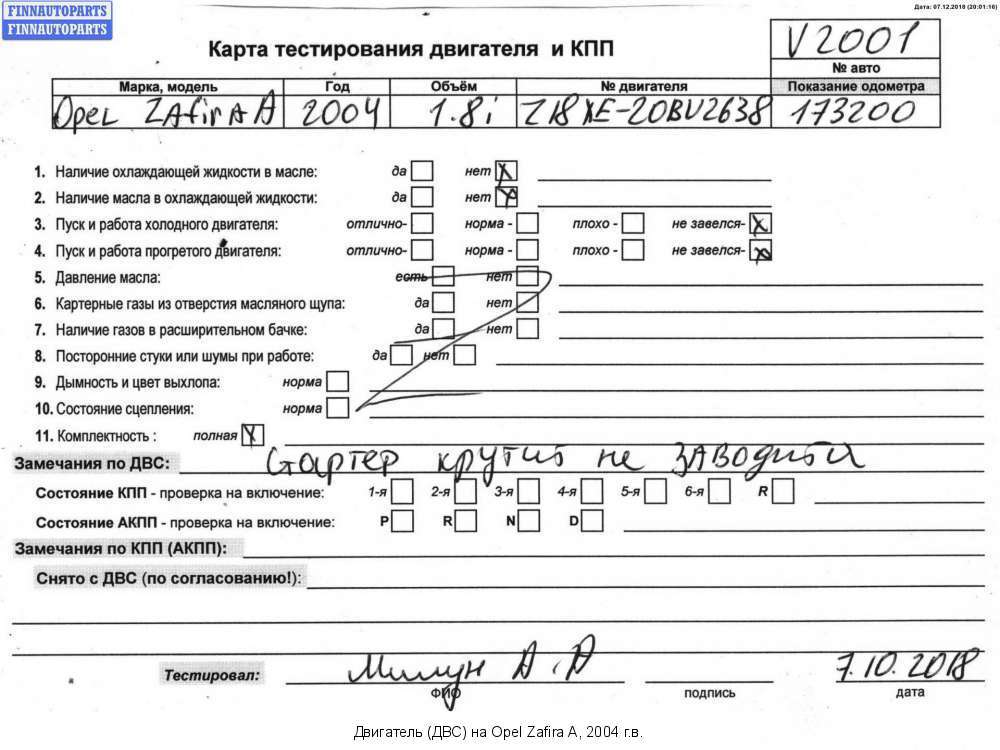 FINNAUTOPARTS
FINNAUTOPARTS
Дата: 07.12.2018 (20:01:16)
Карта тестирования двигателя и КПП
V2001
№ авто
Марка, модель Год Объём № двигателя Показание одометра
Opel ZAfirA A 2004 1.8i Z18XE-20BU2638 173200
1. Наличие охлаждающей жидкости в масле: да нет X
2. Наличие масла в охлаждающей жидкости: да нет X
3. Пуск и работа холодного двигателя: отлично- норма - плохо - не завелся- X
4. Пуск и работа прогретого двигателя: отлично- норма - плохо - не завелся- X
5. Давление масла: есть нет
6. Картерные газы из отверстия масляного щупа: да нет
7. Наличие газов в расширительном бачке: да нет
8. Посторонние стуки или шумы при работе: да нет
9. Дымность и цвет выхлопа: норма
10. Состояние сцепления: норма
11. Комплектность : полная X
Замечания по ДВС: Стартер крутит не заводится
Состояние КПП - проверка на включение: 1-я 2-я 3-я 4-я 5-я 6-я R
Состояние АКПП - проверка на включение: P R N D
Замечания по КПП (АКПП):
Снято с ДВС (по согласованию!):
Тестировал: А. А 7.10.2018
ФИО подпись дата
Двигатель (ДВС) на Opel Zafira A, 2004 г.в.